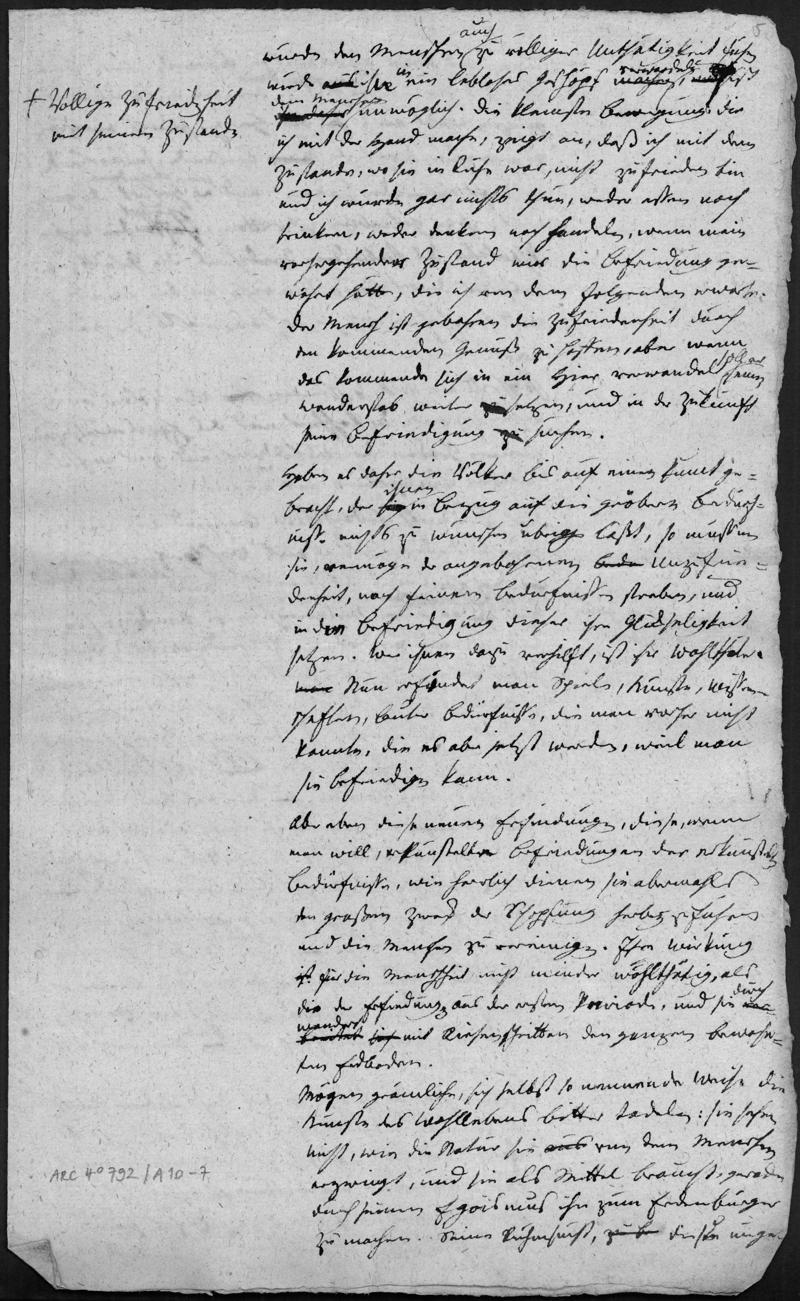 5
auch
würde den Menschen zu völliger Unthätigkeit führen
würde ihn in ein lebloses Geschöpf verwandeln, ist
† Völlige Zufriedenheit
mit seinem Zustande
dem Menschen unmöglich. Die kleinste Bewegung, die
ich mit der Hand mache, zeigt an, daß ich mit dem
Zustande, wo sie in Ruhe war, nicht zufrieden bin
und ich würde gar nichts thun, weder essen noch
trinken, weder denken noch handeln, wenn mein
vorhergehender Zustand mir die Befriedigung ge-
währt hätte, die ich von dem folgenden erwarte.
Der Mensch ist gebohren die Zufriedenheit durch
den kommenden Genuß zu hoffen, aber wenn
das kommende sich in ein Hier verwandelt, seinen
Wanderstab weiter zu setzen, und in der Zukunft
seine Befriedigung zu suchen.
Haben es daher die Völker bis auf einen Punct ge-
bracht, der ihnen in Bezug auf die gröbern Bedürf-
nisse nichts zu wünschen übrig läßt, so müssen
sie, vermöge der angebohrenen Unzufrie-
denheit, nach feinern Bedürfnissen streben, und
in die Befriedigung dieser ihre Glückseligkeit
setzen. Wer ihnen dazu verhilft, ist ihr Wohlthäter.
Nun erfindet man Spiele, Künste, Wissen-
schaften, lauter Bedürfnisse, die man vorher nicht
kannte, die es aber jetzt werden, weil man
sie befriedigen kann.
Aber eben diese neuen Erfindungen, diese, wenn
man will, erkünstelten Befriedungen der erkünstelten
Bedürfnisse, wie herrlich dienen sie abermahls
den großen Zweck der Schöpfung herbey zu führen
und die Menschen zu vereinigen. Ihre Wirkung
ist für die Menschheit nicht minder wohlthätig, als
die der Erfindungen aus der ersten Periode, und sie durch
wandert mit Riesenschritten den ganzen bewohn-
ten Erdboden.
Mögen grämliche, sich selbst so nennende Weise die
Künste des Wohllebens bitter tadeln: sie sehen
nicht, wie die Natur sie von dem Menschen
erzwingt, und sie als Mittel braucht, gerade
durch seinen Egoismus ihn zum Erdenbürger
zu machen. Seine Ruhmsucht, diese unge-
ARC 4° 792 / A 10-7